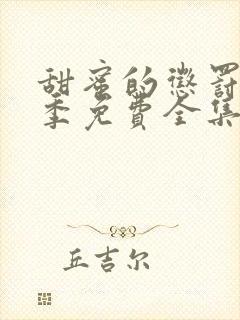 甜蜜的惩罚
季免费全集
丘吉尔